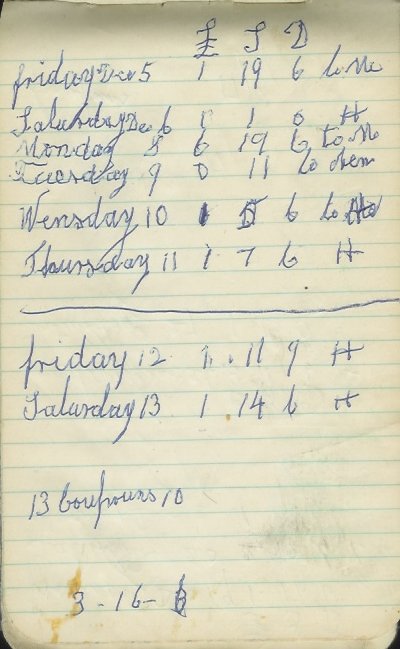 £ S D
friday Dec 5 1 19 6 to
Saturday Dec 6 0 1 0 H
Monday 8 6 19 6 to
Tuesday 9 0 11 to
Wensday 10 1 5 6 to
Thursday 11 1 7 6 H
friday 12 1. 11 9 H
Saturday 13 1 14 6 H
13 coupouns 10
3 - 16 -